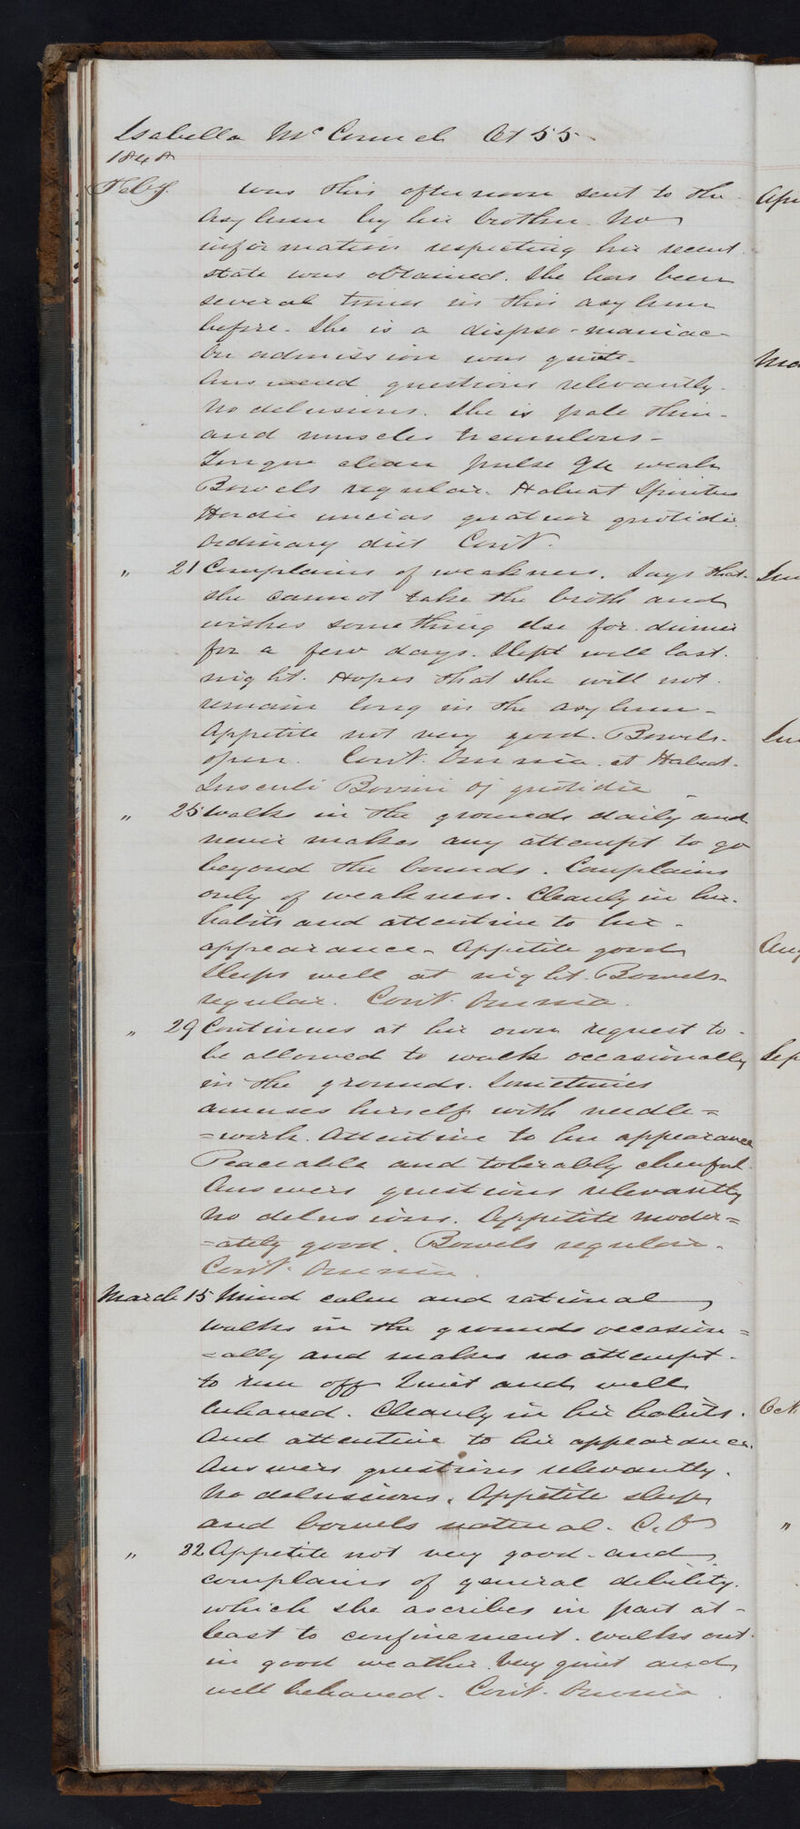 Isabella McConnel Aet 55
1848
Feby. Was this afternoon sent to the
Asylum by her brother. No
information respecting her recent
state was obtained. She has been
several times in this asylum
before. She is a dipso-maniac
On admission was quiet.
Answered questions relevantly.
No delusions. She is pale thin
and muscles tremulous
Tongue clean pulse 94 weak
Bowels regular. Habeat Spiritus
Hordei uncias quatuor quotidie
Ordinary diet Cont.
" 21 Complains of weakness. Says that
she cannot take the broth and
wishes something else for dinner
for a few days. Slept well last
night. Hopes that she will not
remain long in the asylum
Appetite not very good. Bowels
open. Cont. Omnia. et Habeat
Jusculi Bovini quotidie
" 25 Walks in the grounds daily and
never makes any attempt to go
beyond the bounds. Complains
only of weakness. Cleanly in her
habits and attentive to her
appearance. Appetite good
Sleeps well at night. Bowels
regular. Cont. Omnia.
" 29 Continues at her own request to
be allowed to walk occasionally
in the grounds. Sometimes
amuses herself with needle=
=work. Attentive to her appearance
Peaceable and tolerably cheerful.
Answers questions relevantly
No delusions. Appetite moder=
=ately good. Bowels regular.
Cont. Omnia.
March 15 Mind calm and rational
walks in the grounds occasion=
=ally and makes no attempt
to run off Quiet and well
behaved. Cleanly in her habits.
And attentive to her appearance.
Answers questions relevantly.
No delusions. Appetite sleep
and bowels natural. C. O
" 22 Appetite not very good and
complains of general debility.
which she ascribes in part at
least to confinement. Walks out
in good weather. Very quiet and
well behaved. Cont. Omnia.